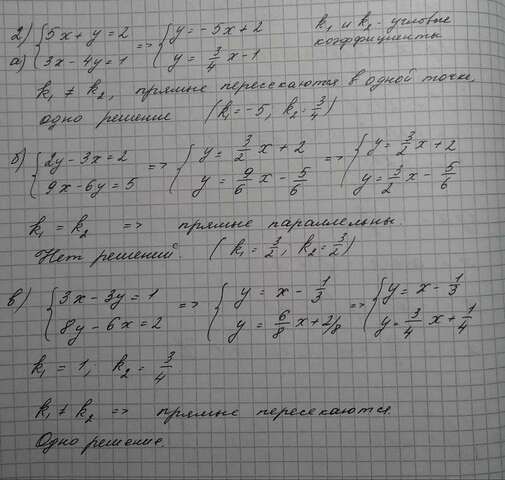 2) { 5x + y = 2 => { y = -5x + 2 k₁ и k₂ - угловые
а) { 3x - 4y = 1 { y = 3/4 x - 1 коэффициенты
k₁ ≠ k₂, прямые пересекаются в одной точке,
одно решение (k₁ = -5, k₂ = 3/4)
б) { 2y - 3x = 2 => { y = 3/2 x + 2 => { y = 3/2 x + 2
{ 9x - 6y = 5 { y = 9/6 x - 5/6 { y = 3/2 x - 5/6
k₁ = k₂ => прямые параллельны.
Нет решений. (k₁ = 3/2, k₂ = 3/2)
в) { 3x - 3y = 1 => { y = x - 1/3 => { y = x - 1/3
{ 8y - 6x = 2 { y = 6/8 x + 2/8 { y = 3/4 x + 1/4
k₁ = 1; k₂ = 3/4
k₁ ≠ k₂ => прямые пересекаются
Одно решение.